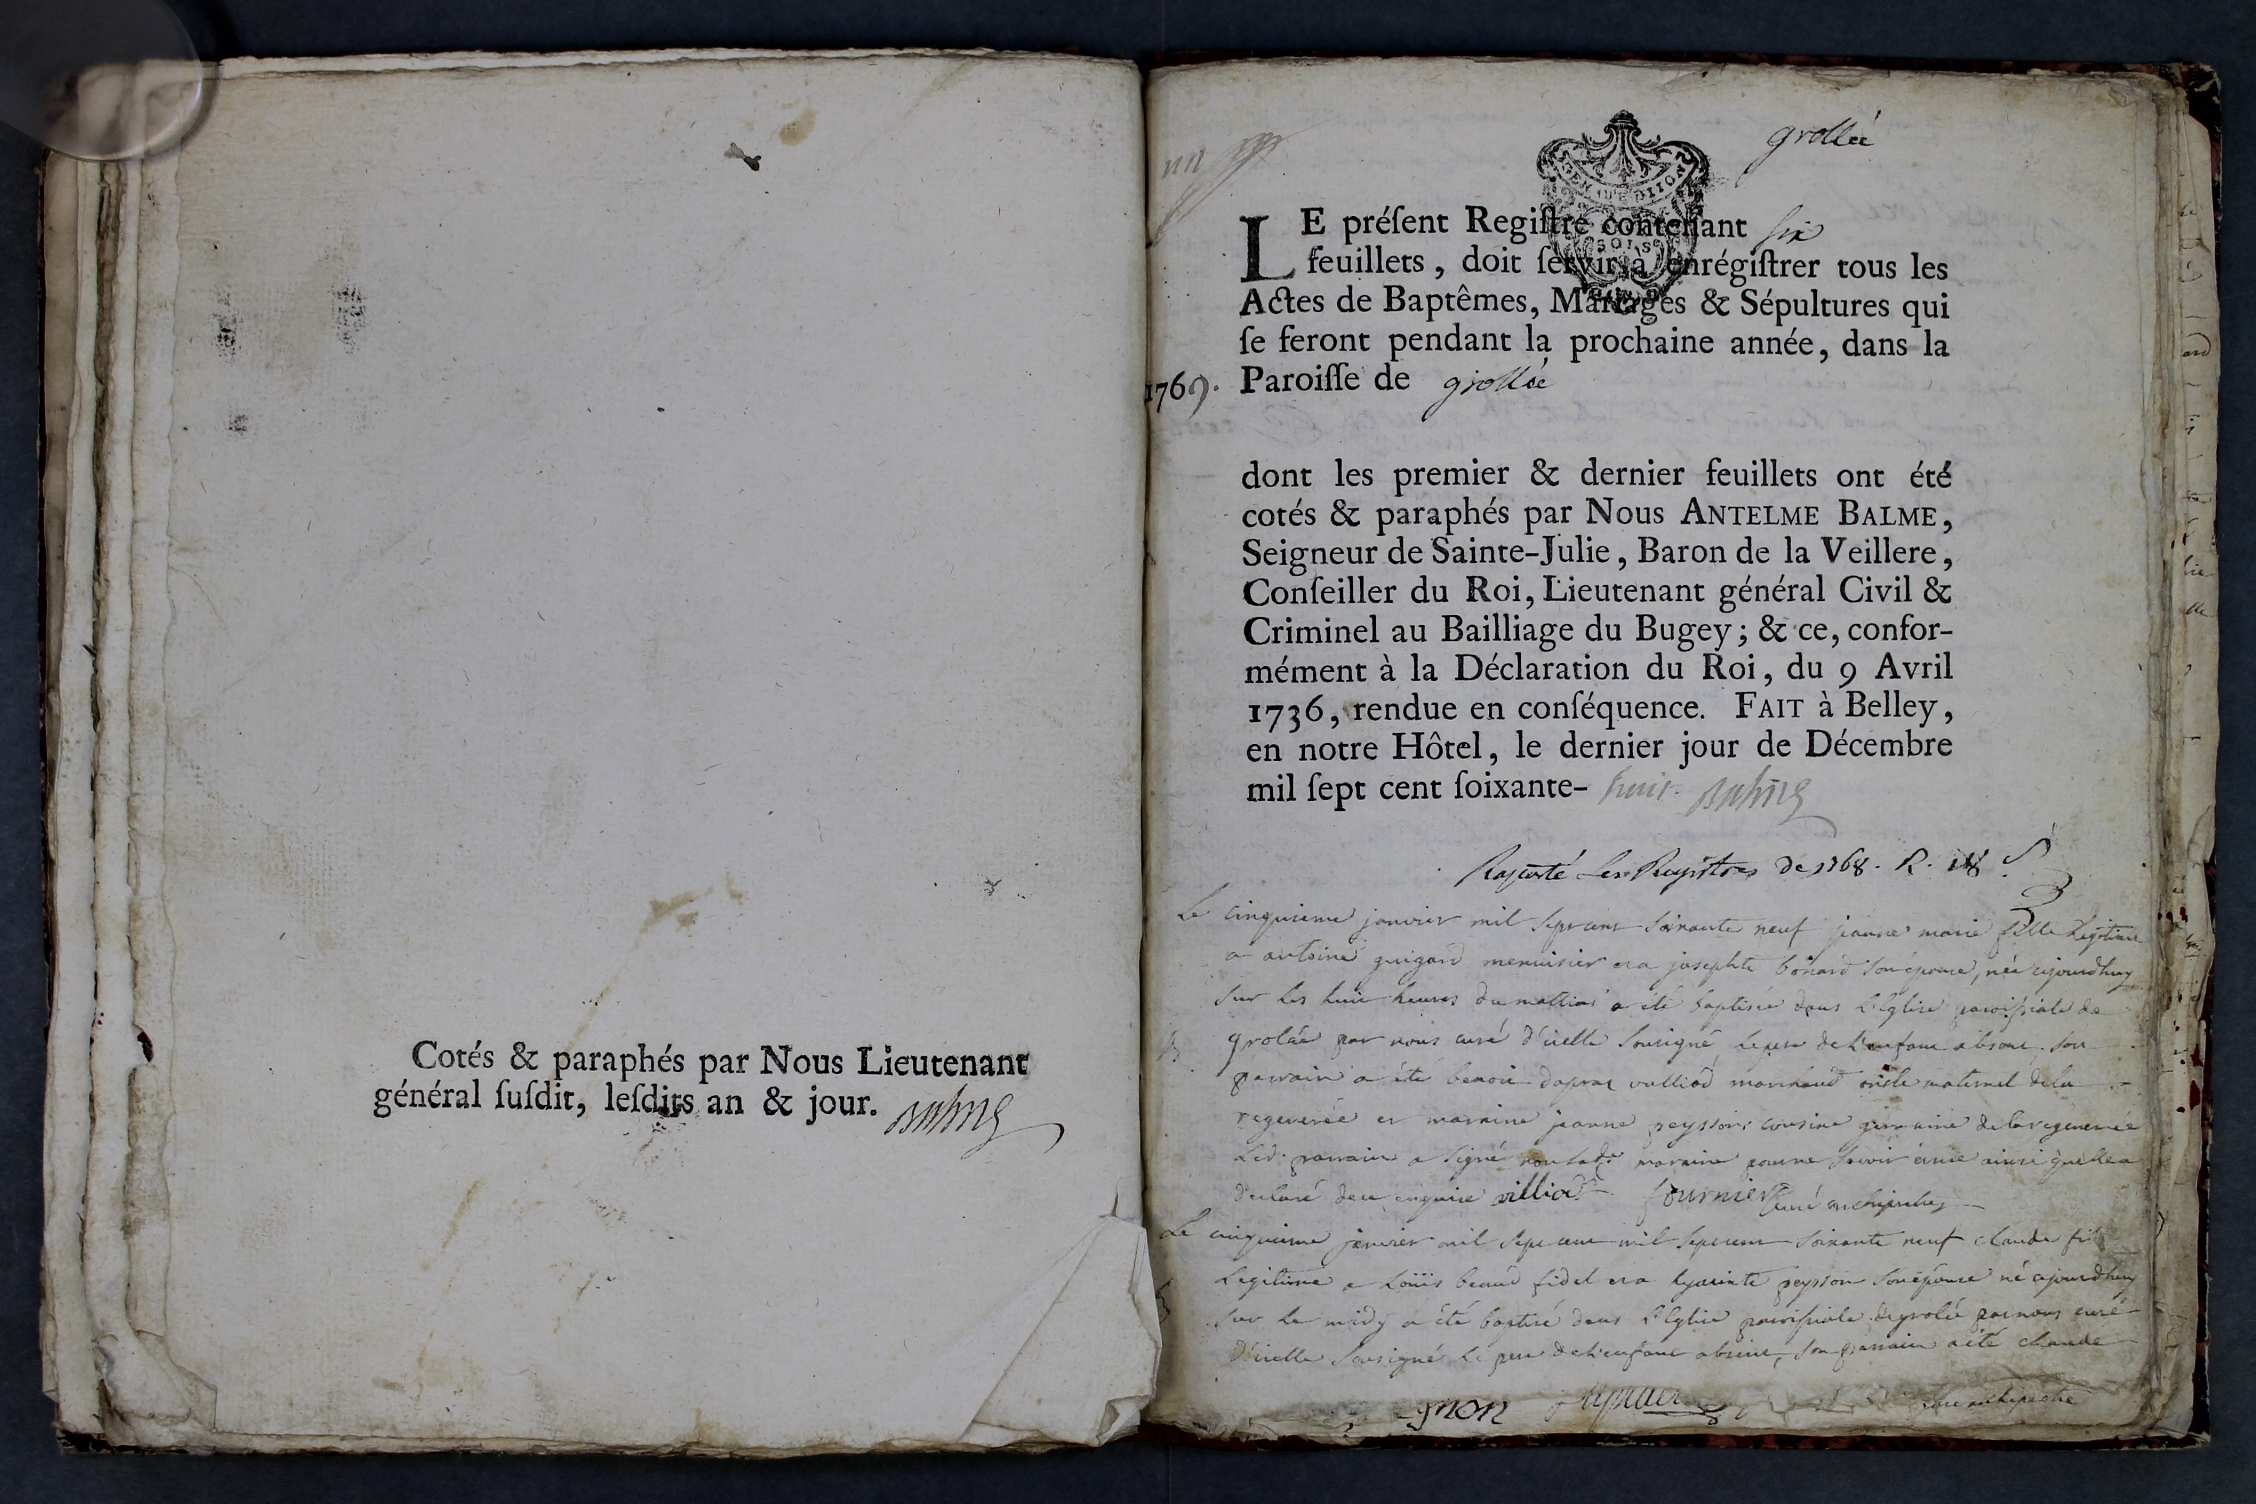 Cotés & paraphés par Nous Lieutenant
général ſuſdit, leſdits an & jour.
grollée
LE préſent Regiſtre contenant ſix
feuillets, doit ſervir à enrégiſtrer tous les
Actes de Baptêmes, Mariages & Sépultures qui
ſe feront pendant la prochaine année, dans la
1769. Paroiſſe de grollée
dont les premier & dernier feuillets ont été
cotés & paraphés par Nous ANTELME BALME,
Seigneur de Sainte-Julie, Baron de la Veillere,
Conſeiller du Roi, Lieutenant général Civil &
Criminel au Bailliage du Bugey; & ce, confor-
mément à la Déclaration du Roi, du 9 Avril
1736, rendue en conſéquence. FAIT à Belley,
en notre Hôtel, le dernier jour de Décembre
mil ſept cent ſoixante- huit
Raporté Les Registres de 1768. R.
Le cinquieme janvier mil sept cent soixante neuf jeanne marie fille Legitime
a antoine guigard menuisier et a josephte bonard son épouse, née ajourdhuy
sur les huit heures du mattin a été baptisée dans L'Eglise paroissiale de
grolée par nous curé d'icelle sousigné le pere de l'enfant absent. son
parrain a été benoit vulliod marchand oncle maternel de la
regenerée et marraine jeanne peysson cousine germaine de la regenerée
Led. parrain a signé non lad. marraine pour ne savoir écrire ainsi qu'elle a
déclaré de ce enquise villiod fournier curé archiprêtre
Le cinquieme janvier mil sept cent mil sept cent soixante neuf claude fils
Legitime a Loüis beaud fidel et a hyacinte peysson son épouse né ajourdhuy
sur le midy a été baptisé dans L'Eglise paroissiale de grolée par nous curé
d'icelle sousigné le pere de l'enfant absent, son parrain a été claude